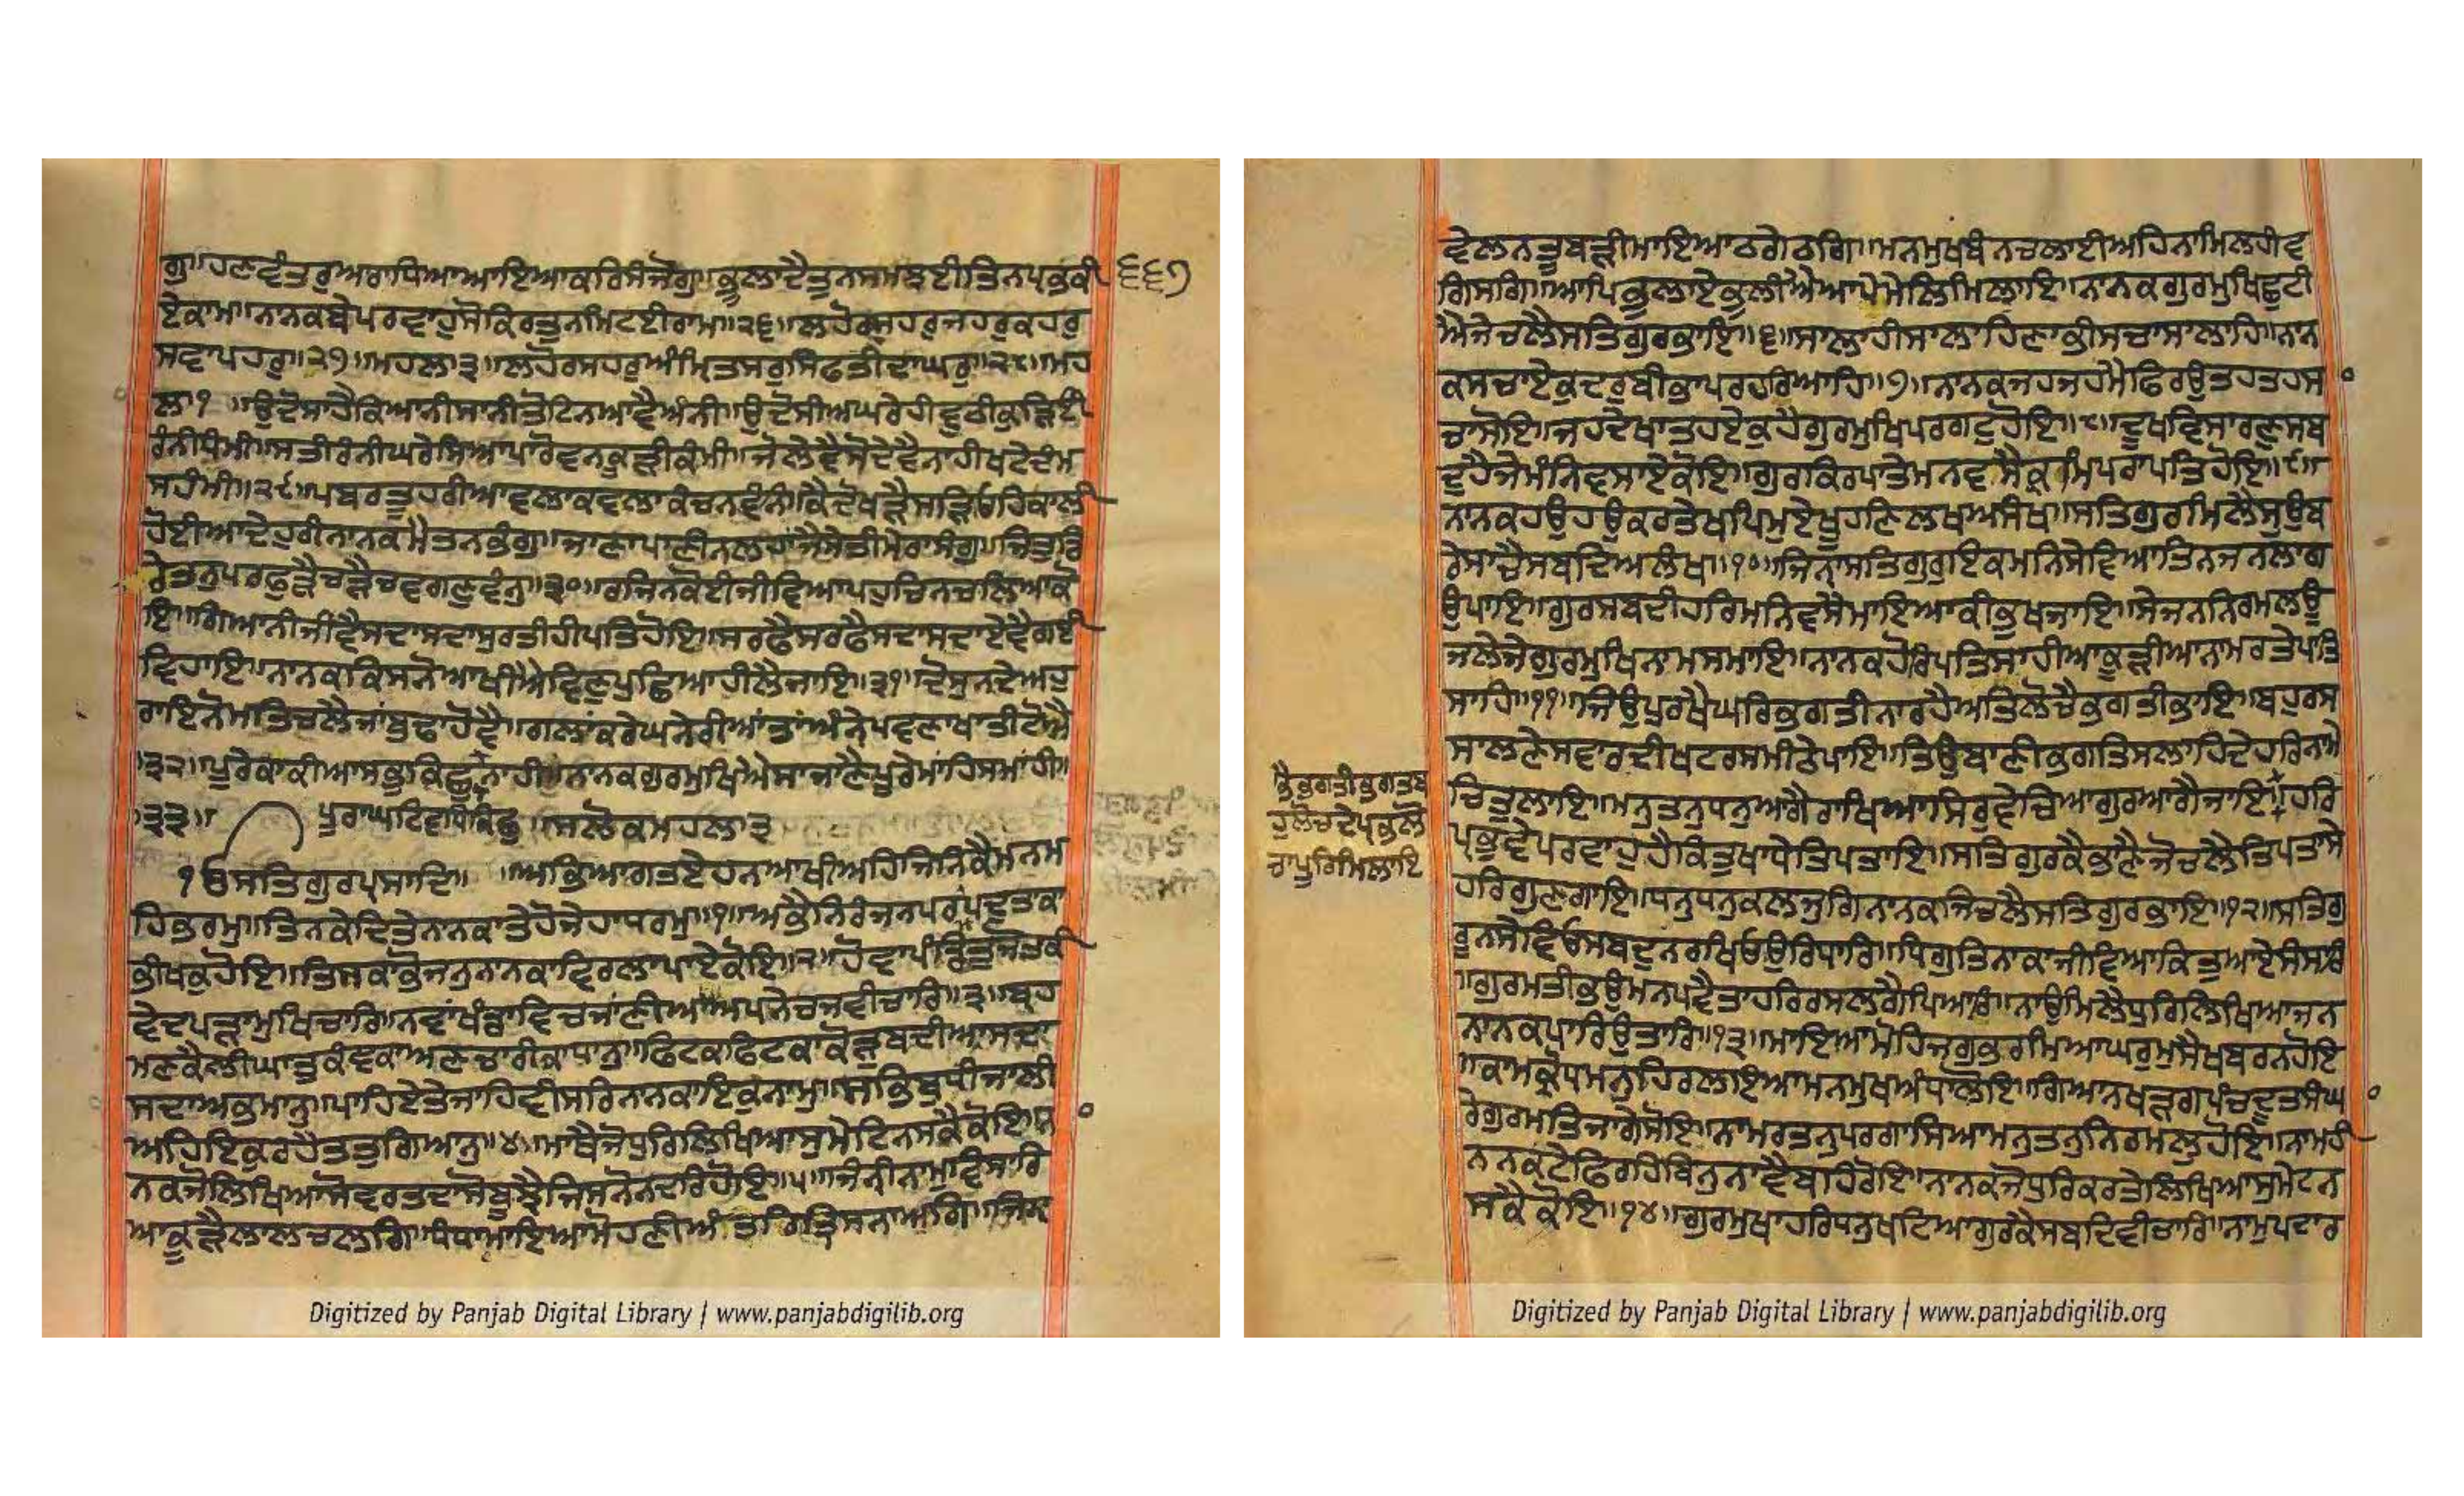 ਗੁ॥ਹਣਵੰਤਰੁਅਰਾਧਿਆਆਇਆਕਰਿਸੰਜੋਗੁ॥ਭੂਲਾਦੈਤੁਨਸਮਝਈਤਿਨਪ੍ਰਭਕੀ ੬੬੭
ਏਕਾਮ॥ਨਾਨਕਬੇਪਰਵਾਹੁਸੋਕਿਰਤੁਨਮਿਟਈਰਾਮ॥੨੬॥ਲਾਹੋਰਸਹਰੁਜਹਰੁਕਹਰੁ
ਸਵਾਪਹਰੁ॥੨੭॥ਮਹਲਾ੩॥ਲਾਹੋਰਸਹਰੁਅੰਮ੍ਰਿਤਸਰੁਸਿਫਤੀਦਾਘਰੁ॥੨੮॥ਮਹ
ਲਾ੧॥ਉਦੋਸਾਹੈਕਿਆਨੀਸਾਨੀਤੋਟਿਨਆਵੈਅੰਨੀ॥ਉਦੋਸੀਅਘਰੇਹੀਵੁਠੀਕੁੜਿਈ
ਰੰਨੀਧੰਮੀ॥ਸਤੀਰੰਨੀਘਰੇਸਿਆਪਾਰੋਵਨਕੂੜੀਕੰਮੀ॥ਜੋਲੇਵੈਸੋਦੇਵੈਨਾਹੀਖਟੇਦੰਮ
ਸਹੰਮੀ॥੨੯॥ਪਬਰਤੂਹਰੀਆਵਲਾਕਵਲਾਕੰਚਨਵੰਨਿ॥ਕੈਦੋਖੜੈਸੜਿਓਹਿਕਾਲੀ
ਹੋਈਆਦੇਹੁਰੀਨਾਨਕਮੈਤਨਭੰਗੁ॥ਜਾਣਾਪਾਣੀਨਲਹਾਂਜੈਸੇਤੀਮੇਰਾਸੰਗੁ॥ਜਿਤੁਡਿ
ਠੇਤਨੁਪਰਫੁੜੈਚੜੈਚਵਗਣੁਵੰਨੁ॥੩੦॥ਰਜਿਨਕੋਈਜੀਵਿਆਪਹੁਚਿਨਚਲਿਆਕੋ
ਇ॥ਗਿਆਨੀਜੀਵੈਸਦਾਸਦਾਸੁਰਤੀਹੀਪਤਿਹੋਇ॥ਸਰਫੈਸਰਫੈਸਦਾਸਦਾਏਵੈਗਈ
ਵਿਹਾਇ॥ਨਾਨਕਕਿਸਨੋਆਖੀਐਵਿਣੁਪੁਛਿਆਹੀਲੈਜਾਇ॥੩੧॥ਦੋਸੁਨਦੇਅਹੁ
ਰਾਇਨੋਮਤਿਚਲੈਜਾਂਬੁਢਾਹੋਵੈ॥ਗਲਾਂਕਰੇਘਨੇਰੀਆਂਤਾਂਅੰਨੇਪਵਣਾਖਾਤੀਟੋਐ
॥੩੨॥ਪੂਰੇਕਾਕੀਆਸਭੁਕਿਛੁਨਾਹੀ॥ਨਾਨਕਗੁਰਮੁਖਿਐਸਾਜਾਣੈਪੂਰੇਮਾਂਹਿਸਮਾਂਹੀ॥
॥੩੩॥ ਪੂਰਾਘਟਿਵਧਿਕਿਛੁ ॥ਸਲੋਕਮਹਲਾ੩
ੴਸਤਿਗੁਰਪ੍ਰਸਾਦਿ॥ ॥ਅਭਿਆਗਤਏਹਨਆਖੀਅਹਿਜਿਨਿਕੈਮਨਮ
ਹਿਭਰਮੁ॥ਤਿਨਕੇਦਿਤੇਨਾਨਕਾਤੇਹੋਜੇਹਾਧਰਮੁ॥੧॥ਅਭੈਨਿਰੰਜਨਪਰਮਪਦੁਤਾਕਾ
ਭੀਖਕੁਹੋਇ॥ਤਿਸਕਾਭੋਜਨੁਨਾਨਕਾਵਿਰਲਾਪਾਏਕੋਇ॥੨॥ਹੋਵਾਪੰਡਿਤੁਜੋਤਕੀ
ਵੇਦਪੜਾਮੁਖਿਚਾਰਿ॥ਨਵਾਂਖੰਡਾਵਿਚਜਾਣੀਆਅਪਨੇਚਜਵੀਚਾਰਿ॥੩॥ਬ੍ਰਹ
ਮਣਕੈਲੀਘਾਤੁਕੰਞਕਾਅਣਚਾਰੀਕਾਧਾਨੁ॥ਫਿਟਕਫਿਟਕਾਕੋੜੁਬਦੀਆਸਦਾ
ਸਦਾਅਭਮਾਨੁ॥ਪਾਹਿਏਤੇਜਾਹਿਵੀਸਰਿਨਾਨਕਾਇਕੁਨਾਮੁ॥ਸਭਿਬੁਧੀਜਾਲੀ
ਅਹਿਇਕੁਰਹੈਤਤੁਗਿਆਨੁ॥੪॥ਮਾਥੈਜੋਧੁਰਿਲਿਖਿਆਸੁਮੇਟਿਨਸਕੈਕੋਇ॥ਨਾ
ਨਕਜੋਲਿਖਿਆਸੋਵਰਤਦਾਸੋਬੂਝੈਜਿਸਨੋਨਦਰਿਹੋਇ॥੫॥ਜਿਨੀਨਾਮੁਵਿਸਾਰਿ
ਆਕੂੜੈਲਾਲਚਲਗਿ॥ਧੰਧਾਮਾਇਆਮੋਹਣੀਅੰਤਰਿਤਿਸਨਾਅਗਿ॥ਜਿਨ੍ਹਾ
Digitized by Panjab Digital Library | www.panjabdigilib.org
ਵੇਲਨਤੂਬੜੀਮਾਇਆਠਗੇਠਗਿ॥ਮਨਮੁਖਬੰਨਚਲਾਈਅਹਿਨਾਮਿਲਹੀਵ
ਗਿਸਗਿ॥ਆਪਿਭੁਲਾਏਭੁਲੀਐਆਪੇਮੇਲਿਮਿਲਾਇ॥ਨਾਨਕਗੁਰਮੁਖਿਛੁਟੀ
ਐਜੇਚਲੈਸਤਿਗੁਰਭਾਇ॥੬॥ਸਾਲਾਹੀਸਾਲਾਹਿਣਾਭੀਸਚਾਸਾਲਾਹਿ॥ਨਾਨ
ਕਸਚਾਏਕੁਦਰੁਬੀਭਾਪਰਹਰਿਆਹਿ॥੭॥ਨਾਨਕਜਹਜਹਮੈਫਿਰਉਤਹਤਹਸਾ
ਚਾਸੋਇ॥ਜਹਦੇਖਾਤਹਏਕੁਹੈਗੁਰਮੁਖਿਪਰਗਟੁਹੋਇ॥੮॥ਦੂਖਵਿਸਾਰਣੁਸਬ
ਦੁਹੈਜੇਮੰਨਿਵਸਾਏਕੋਇ॥ਗੁਰਕਿਰਪਾਤੇਮਨਵਸੈਕਰਮਪਰਾਪਤਿਹੋਇ॥੯॥
ਨਾਨਕਹਉਹਉਕਰਤੇਖਪਿਮੁਏਖੂਹਣਿਲਖਅਸੰਖ॥ਸਤਿਗੁਰਮਿਲੈਸੁਉਬ
ਰੇਸਾਚੈਸਬਦਿਅਲੰਖ॥੧੦॥ਜਿਨਾਸਤਿਗੁਰੁਇਕਮਨਿਸੇਵਿਆਤਿਨਜਨਲਾਗ
ਉਪਾਇ॥ਗੁਰਸਬਦੀਹਰਿਮਨਿਵਸੈਮਾਇਆਕੀਭੁਖਜਾਇ॥ਸੇਜਨਨਿਰਮਲਊ
ਜਲੇਜੇਗੁਰਮੁਖਿਨਾਮਸਮਾਇ॥ਨਾਨਕਹੋਰਿਪਤਿਸਾਹੀਆਕੂੜੀਆਨਾਮਰਤੇਪਾਤਿ
ਸਾਹਿ॥੧੧॥ਜਿਉਪੁਰਖੈਘਰਿਭਗਤੀਨਾਰਹੈਅਤਿਲੋਚੈਭਗਤੀਭਾਇ॥ਬਹੁਰਸ
ਸਾਲਣੇਸਵਾਰਦੀਖਟਰਸਮੀਠੇਪਾਇ॥ਤਿਉਬਾਣੀਭਗਤਿਸਲਾਹਿਦੇਹਰਿਨਾਮੈ
ਚਿਤੁਲਾਇ॥ਮਨੁਤਨੁਧਨੁਆਗੈਰਾਖਿਆਸਿਰੁਵੇਚਿਆਗੁਰਆਗੈਜਾਇ॥ਹਰਿ
ਭੈਭਗਤੀਭਗਤਬ
ਹੁਲੋਚਦੇਪ੍ਰਭਲੋ
ਚਾਪੂਰਿਮਿਲਾਇ
ਪ੍ਰਭੁਵੇਪਰਵਾਹੁਹੈਕਿਤੁਖਾਧੇਤਿਪਤਾਇ॥ਸਤਿਗੁਰਕੈਭਾਣੈਜੋਚਲੈਤਿਪਤਾਸੇ
ਹਰਿਗੁਣਗਾਇ॥ਧਨੁਧਨੁਕਲਜੁਗਿਨਾਨਕਾਜਿਚਲੈਸਤਿਗੁਰਭਾਇ॥੧੨॥ਸਤਿਗੁ
ਰੂਨਸੇਵਿਓਸਬਦੁਨਰਖਿਓਉਰਿਧਾਰਿ॥ਧਿਗੁਤਿਨਾਕਾਜੀਵਿਆਕਿਤੁਆਏਸੰਸਾਰਿ
॥ਗੁਰਮਤੀਭਉਮਨਪਵੈਤਾਹਰਿਰਸਲਗੈਪਿਆਰਿ॥ਨਾਉਮਿਲੈਧੁਰਿਲਿਖਿਆਜਨ
ਨਾਨਕਪਾਰਿਉਤਾਰਿ॥੧੩॥ਮਾਇਆਮੋਹਿਜਗੁਭਰਮਿਆਘਰੁਮੁਸੈਖਬਰਨਹੋਇ
॥ਕਾਮਕ੍ਰੋਧਮਨੁਹਿਰਲਇਆਮਨਮੁਖਅੰਧਾਲੋਇ॥ਗਿਆਨਖੜਗਪੰਚਦੂਤਸੰਘਾ
ਰੇਗੁਰਮਤਿਜਾਗੇਸੋਇ॥ਨਾਮਰਤਨੁਪਰਗਾਸਿਆਮਨੁਤਨੁਨਿਰਮਲੁਹੋਇ॥ਨਾਮਹੀ
ਨਨਕਟੇਫਿਰਹਿਬਿਨੁਨਾਵੈਬਹਿਰੋਇ॥ਨਾਨਕਜੋਧੁਰਿਕਰਤੇਲਿਖਿਆਸੁਮੇਟਨ
ਸਕੈਕੋਇ॥੧੪॥ਗੁਰਮੁਖਾਹਰਿਧਨੁਖਟਿਆਗੁਰਕੈਸਬਦਿਵੀਚਾਰਿ॥ਨਾਮੁਪਦਾਰ
Digitized by Panjab Digital Library | www.panjabdigilib.org